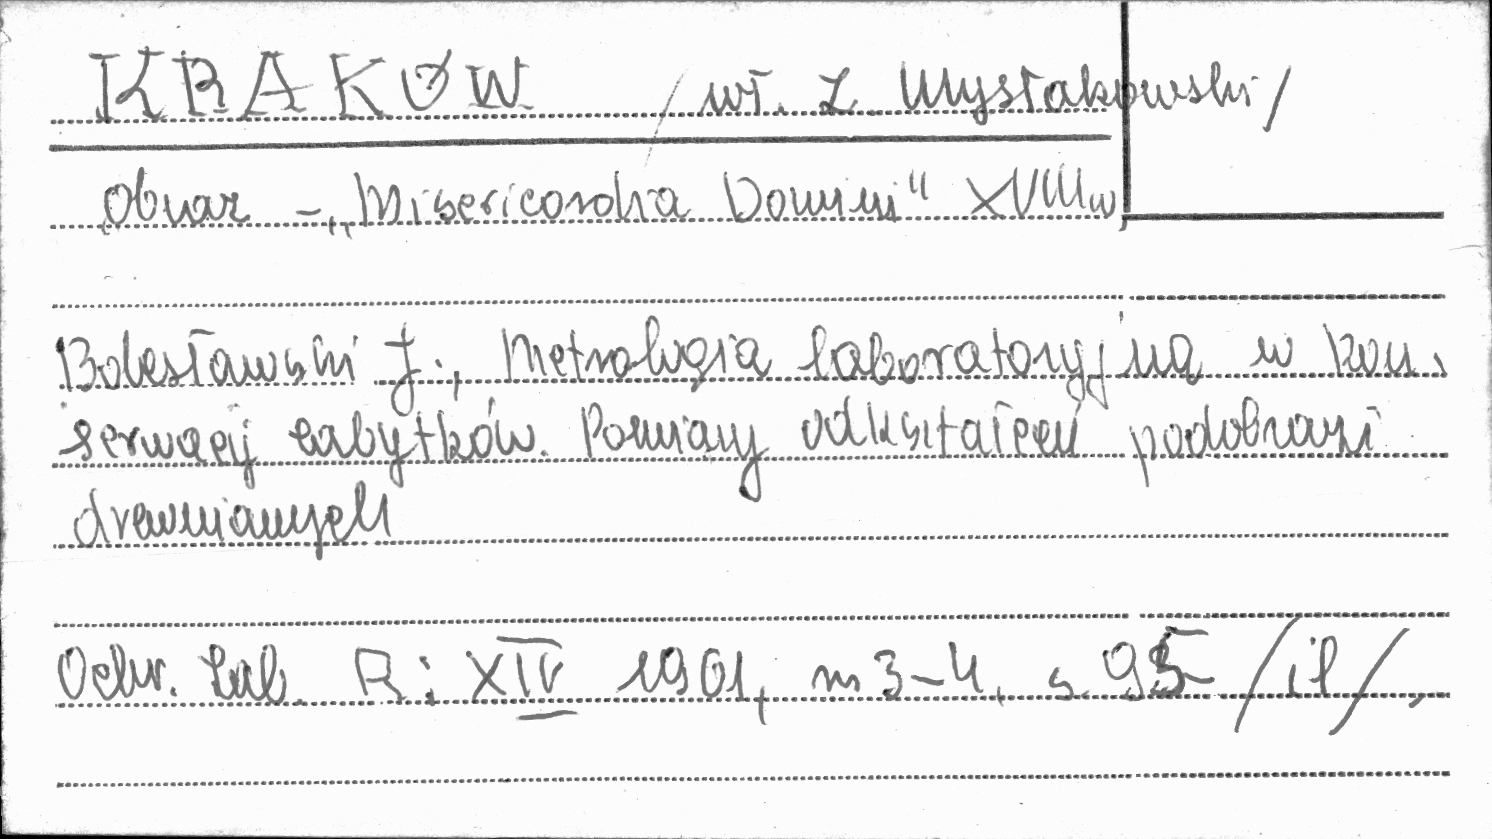 KRAKÓW /wł. Z. Mysłakowski/
Obraz - "Misericordia Domini" XVIII w.
Bolesławski J., Metrologia laboratoryjna w kon-
serwacji zabytków. Pomiary odkształceń podobrazi
drewnianych
Ochr. Zab. R: XIV 1961, nr 3-4, s. 95 /il/.